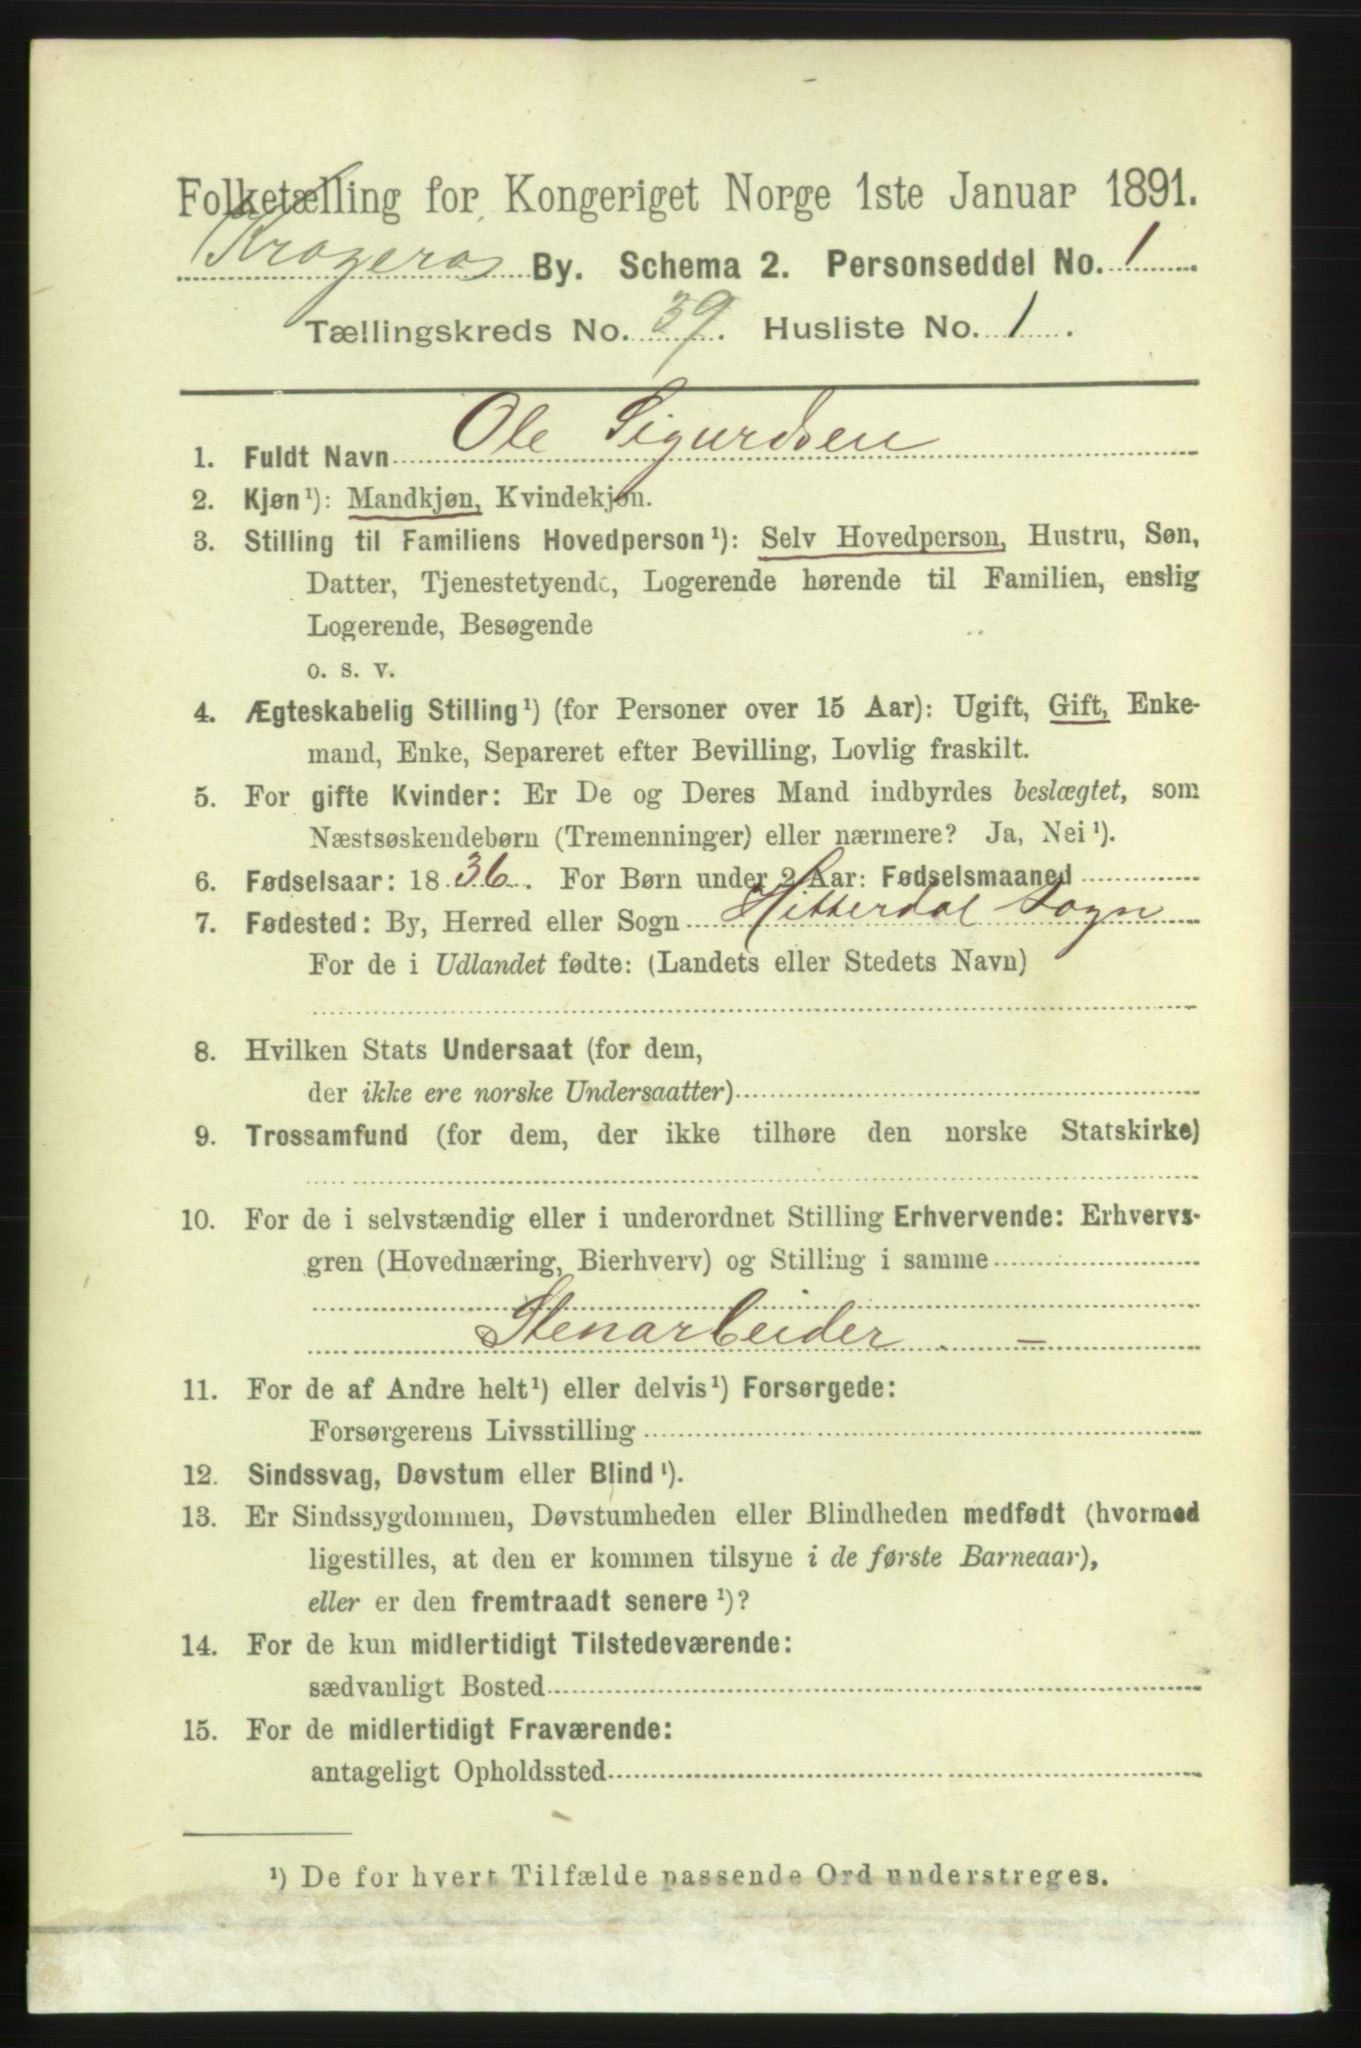 Folketælling for Kongeriget Norge 1ste Januar 1891.
Kragerø By. Schema 2. Personseddel No. 1
Tællingskreds No. 39. Husliste No. 1.
1. Fuldt Navn Ole Sigurdsen
2. Kjøn¹): Mandkjøn, Kvindekjøn.
3. Stilling til Familiens Hovedperson¹): Selv Hovedperson, Hustru, Søn,
Datter, Tjenestetyende, Logerende hørende til Familien, enslig
Logerende, Besøgende
o. s. v.
4. Ægteskabelig Stilling¹) (for Personer over 15 Aar): Ugift, Gift, Enke-
mand, Enke, Separeret efter Bevilling, Lovlig fraskilt.
5. For gifte Kvinder: Er De og Deres Mand indbyrdes beslægtet, som
Næstsøskendebørn (Tremenninger) eller nærmere? Ja, Nei¹).
6. Fødselsaar: 1836. For Børn under 2 Aar: Fødselsmaaned
7. Fødested: By, Herred eller Sogn Hitterdal Sogn
For de i Udlandet fødte: (Landets eller Stedets Navn)
8. Hvilken Stats Undersaat (for dem,
der ikke ere norske Undersaatter)
9. Trossamfund (for dem, der ikke tilhøre den norske Statskirke)
10. For de i selvstændig eller i underordnet Stilling Erhvervende: Erhvervs-
gren (Hovednæring, Bierhverv) og Stilling i samme
Stenarbeider –
11. For de af Andre helt¹) eller delvis¹) Forsørgede:
Forsørgerens Livsstilling
12. Sindssvag, Døvstum eller Blind¹).
13. Er Sindssygdommen, Døvstumheden eller Blindheden medfødt (hvormed
ligestilles, at den er kommen tilsyne i de første Barneaar),
eller er den fremtraadt senere¹)?
14. For de kun midlertidigt Tilstedeværende:
sædvanligt Bosted
15. For de midlertidigt Fraværende:
antageligt Opholdssted
¹) De for hvert Tilfælde passende Ord understreges.